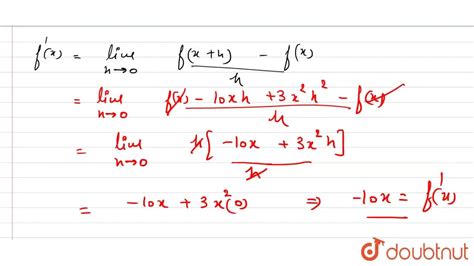 f'(x) = lim h→0 f(x+h) - f(x) / h
= lim h→0 f(x) - 10xh + 3x²h² - f(x) / h
= lim h→0 h[-10x + 3x²h] / h
= -10x + 3x²(0) ⇒ -10x = f'(x)
doubtnut